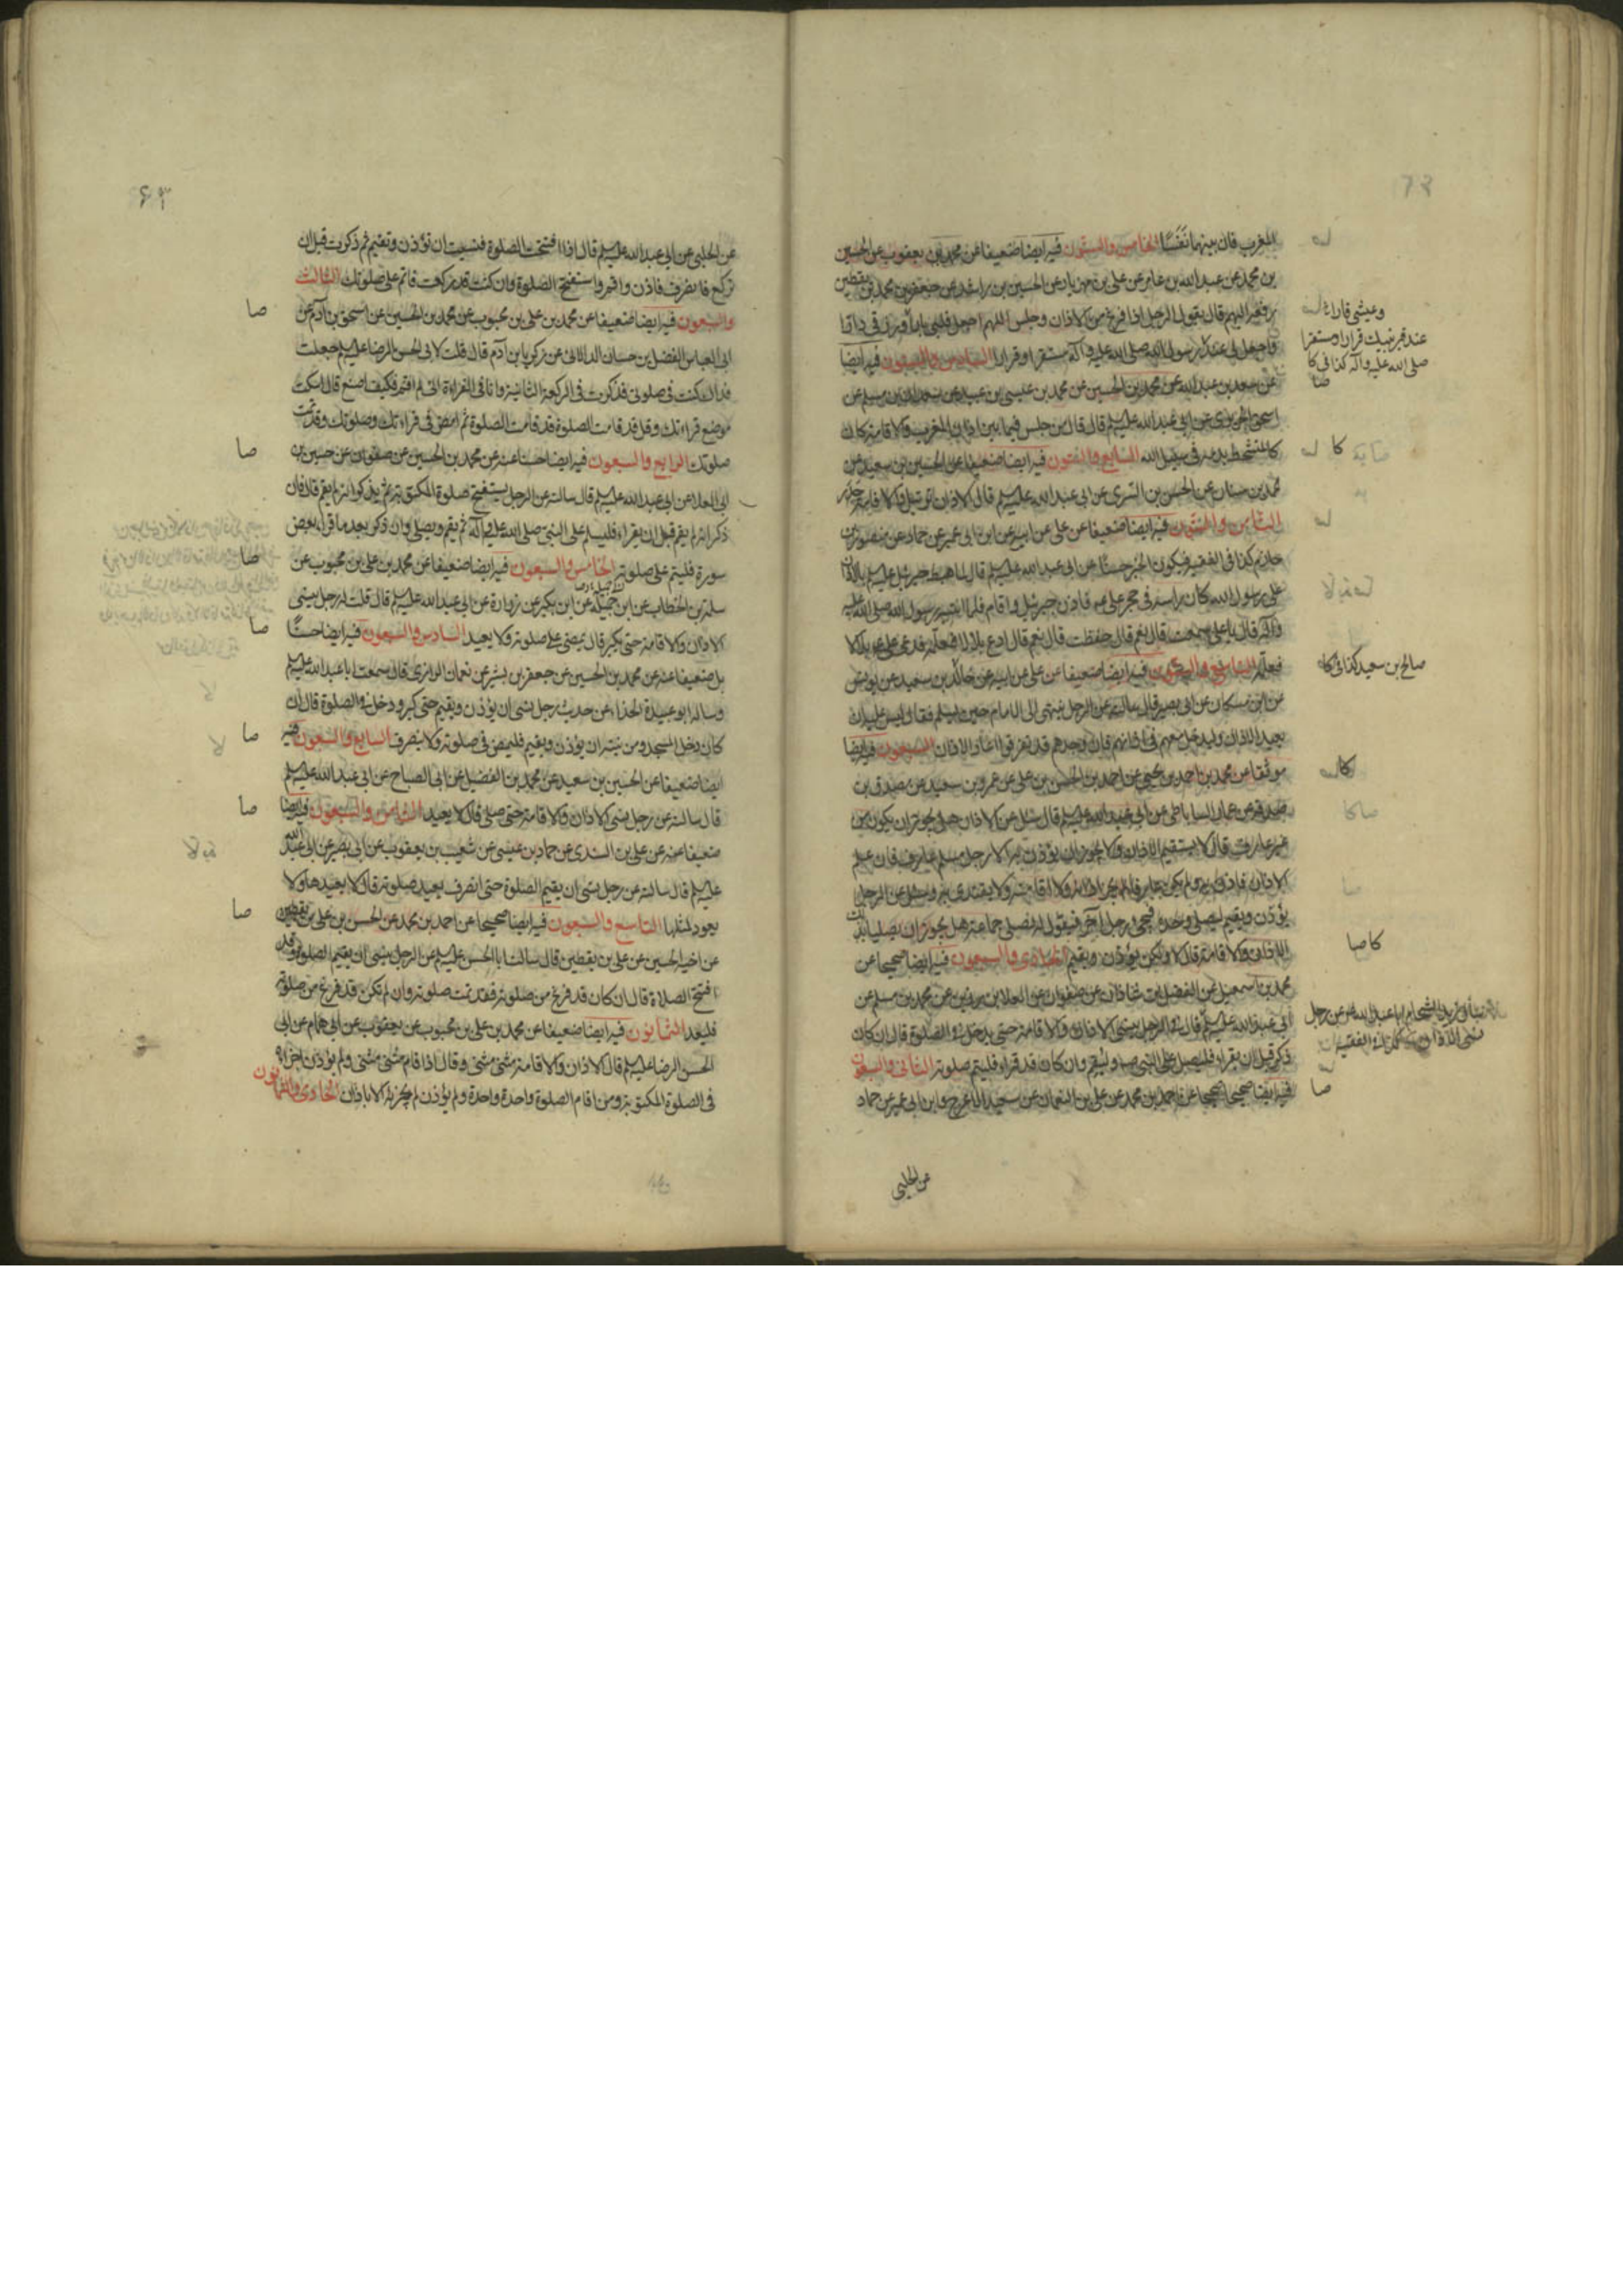 المغرب فان بينهما نَفَسًا الخامس والستون فيه ايضا ضعيفا عن محمد بن يعقوب عن الحسين
بن محمد عن عبد الله بن عامر عن علي بن مهزيار عن الحسين بن راشد عن جعفر بن محمد بن يقطين
رفعه اليهم قال يقول الرجل اذا فرغ من الاذان وجلس اللهم اجعل قلبي بارا ورزقي دارا
واجعل لي عند رسول الله صلى الله عليه وآله مستقرا وقرارا السادس والستون فيه ايضا
عن سعد بن عبد الله عن محمد بن الحسين عن محمد بن عيسى بن عبيد عن سعدان بن مسلم عن
اسحق الجريري عن ابي عبد الله عليه السلم قال قال من جلس فيما بين اذان المغرب والاقامة كان
كالمتشحط بدمه في سبيل الله السابع والستون فيه ايضا ضعيفا عن الحسين بن سعيد عن
محمد بن سنان عن الحسن بن السري عن ابي عبد الله عليه السلم قال الاذان ترتيل والاقامة حدر
الثامن والستون فيه ايضا ضعيفا عن علي عن ابيه عن ابن ابي عمير عن حماد عن منصور بن
حازم كذا في الفقيه فيكون الخبر حسنًا عن ابي عبد الله عليه السلم قال لما هبط جبرئيل عليه السلم بالاذان
على رسول الله كان راسه في حجر علي عم فاذن جبرئيل واقام فلما انتبه رسول الله صلى الله عليه
وآله قال يا علي سمعت قال نعم قال حفظت قال نعم قال ادع بلالا فعلمه فدعى علي عم بلالا
فعلمه التاسع والستون فيه ايضا ضعيفا عن علي عن ابيه عن خالد بن سعيد عن يونس
عن ابن مسكان عن ابي بصير قال سالته عن الرجل ينتهى الى الامام حين يسلم فقال ليس عليه ان
يعيد الاذان وليدخل معهم في اذانهم فان وجدهم قد تفرقوا اعاد الاذان السبعون فيه ايضا
موثقا عن محمد بن احمد بن يحيى عن احمد بن الحسن بن علي عن عمرو بن سعيد عن مصدق بن
صدقة عن عمار الساباطي عن ابي عبد الله عليه السلم قال سئل عن الاذان هل يجوز ان يكون من
غير عارف قال لا يستقيم الاذان ولا يجوز ان يؤذن به الا رجل مسلم عارف فان علم
الاذان فاذن به ولم يكن عارفا لم يجز اذانه ولا اقامته ولا يقتدى به وسئل عن الرجل
يؤذن ويقيم ليصلى وحده فيجئ رجل آخر فيقول له نصلى جماعة هل يجوز ان يصليا بذلك
الاذان والاقامة قال لا ولكن يؤذن ويقيم الحادي والسبعون فيه ايضا صحيحا عن
محمد بن اسمعيل عن الفضل بن شاذان عن صفوان عن العلا بن رزين عن محمد بن مسلم عن
ابي عبد الله عليه السلم قال في الرجل ينسى الاذان والاقامة حتى يدخل في الصلوة قال ان كان
ذكر قبل ان يقراء فليصل على النبي صه وليقم وان كان قد قراء فليتم صلوته الثاني والسبعون
فيه ايضا صحيحا صحيحا عن احمد بن محمد عن علي بن النعمان عن سعيد الاعرج وابن ابي عمير عن حماد
عن الحلبي
وعيشى قارا
عند قبر نبيك قرارا ومستقرا
صلى الله عليه وآله كذا في كا
صا
كا
صالح بن سعيد كذا في كا
كا
كا صا
زيد الشحام ابا عبد الله عم عن رجل
نسى الاذان كذا في الفقيه
صا
٦٣
عن الحلبي عن ابي عبد الله عليه السلم قال اذا افتتحت الصلوة فنسيت ان تؤذن وتقيم ثم ذكرت قبل ان
تركع فانصرف فاذن واقم واستفتح الصلوة وان كنت قد ركعت فاتم على صلوتك الثالث
والسبعون فيه ايضا ضعيفا عن محمد بن علي بن محبوب عن محمد بن الحسين عن اسحق بن آدم عن
ابي العباس الفضل بن حسان الدالاني عن زكريا بن آدم قال قلت لابي الحسن الرضا عليه السلم جعلت
فداك كنت في صلوتي فذكرت في الركعة الثانية وانا في القراءة اني لم اقم فكيف اصنع قال اسكت
موضع قراءتك وقل قد قامت الصلوة قد قامت الصلوة ثم امض في قراءتك وصلوتك وقد تمت
صلوتك الرابع والسبعون فيه ايضا حسنا عنه عن محمد بن الحسين عن صفوان عن حسين بن
ابي العلا عن ابي عبد الله عليه السلم قال سالته عن الرجل يستفتح صلوة المكتوبة ثم يذكر انه لم يقم قال فان
ذكر انه لم يقم قبل ان يقراء فليسلم على النبي صلى الله عليه وآله ثم يقيم ويصلي وان ذكر بعد ما قراء بعض
سورة فليتم على صلوته الخامس والسبعون فيه ايضا ضعيفا عن محمد بن علي بن محبوب عن
سلمة بن الخطاب عن ابي جميلة عن ابن بكير عن زرارة عن ابي عبد الله عليه السلم قال قلت له رجل ينسى
الاذان والاقامة حتى يكبر قال يمضى على صلوته ولا يعيد السادس والسبعون فيه ايضا حسنًا
بل ضعيفا عنه عن محمد بن الحسين عن جعفر بن بشير عن نعمان الرازي قال سمعت ابا عبد الله عليه السلم
وساله ابو عبيدة الحذاء عن حديث رجل نسى ان يؤذن ويقيم حتى كبر ودخل في الصلوة قال ان
كان دخل المسجد ومن نيته ان يؤذن ويقيم فليمض في صلوته ولا ينصرف السابع والسبعون فيه
ايضا ضعيفا عن الحسين بن سعيد عن محمد بن الفضيل عن ابي الصباح عن ابي عبد الله عليه السلم
قال سالته عن رجل نسى الاذان والاقامة حتى صلى قال لا يعيد الثامن والسبعون فيه ايضا
ضعيفا عنه عن علي بن السندي عن حماد بن عيسى عن شعيب بن يعقوب عن ابي بصير عن ابي عبد الله
عليه السلم قال سالته عن رجل نسى ان يقيم الصلوة حتى انصرف يعيد صلوته قال لا يعيدها ولا
يعود لمثلها التاسع والسبعون فيه ايضا صحيحا عن احمد بن محمد عن الحسن بن علي بن يقطين
عن اخيه الحسين عن علي بن يقطين قال سالت ابا الحسن عليه السلم عن الرجل ينسى ان يقيم الصلوة وقد
افتتح الصلاة قال ان كان قد فرغ من صلوته فقد تمت صلوته وان لم تكن قد فرغ من صلوته
فليعد الثمانون فيه ايضا ضعيفا عن محمد بن علي بن محبوب عن يعقوب عن ابي همام عن ابي
الحسن الرضا عليه السلم قال الاذان والاقامة مثنى مثنى وقال اذا قام مثنى مثنى ولم يؤذن اجزاه
في الصلوة المكتوبة ومن اقام الصلوة واحدة واحدة ولم يؤذن لم يجزئه الا باذان الحادي والثمانون
صا
صا
صا
صا
صا
صا
صا